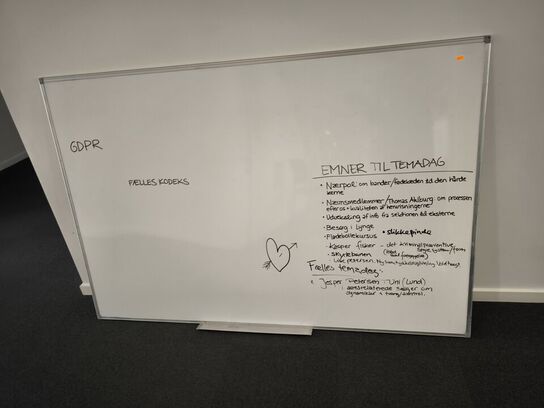 GDPR
FÆLLES KODEKS
EMNER TIL TEMADAG
• Nærpol: om bander/fødekæden til den hårde
kerne
• Nævnsmedlemmer/Thomas om processen
efter os + kvaliteten af henvisningerne
• Udveksling af info fra sektionen til eksterne
• Besøg i Lynge
• Flødebollekursus • stikkepinde
• Kasper fisker - det kriminalpræventive
• Skydebanen
Fælles temadag:
• Jesper Petersen Uni (Lund)